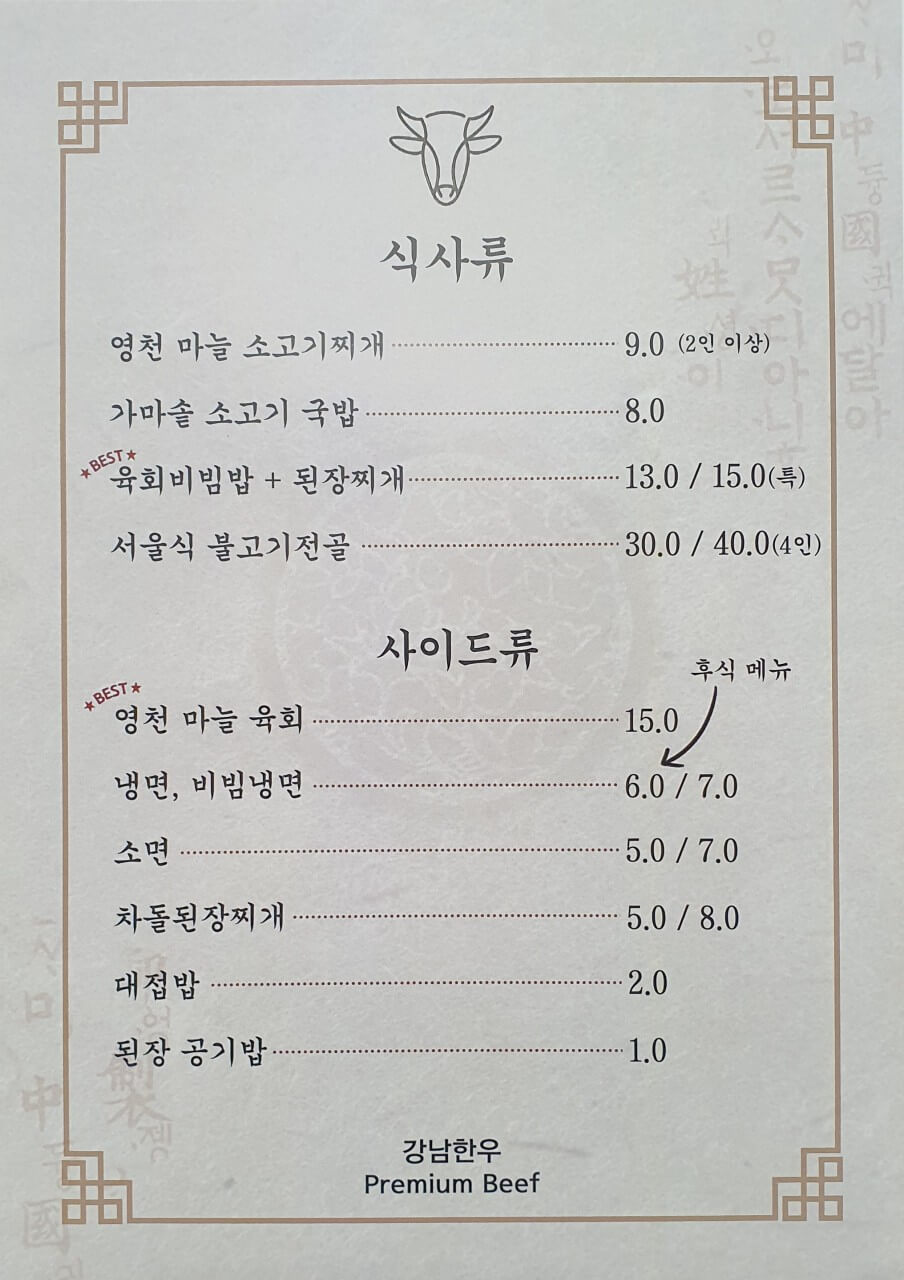 식사류
영천 마늘 소고기찌개 9.0 (2인 이상)
가마솥 소고기 국밥 8.0
★BEST★
육회비빔밥 + 된장찌개 13.0 / 15.0(특)
서울식 불고기전골 30.0 / 40.0(4인)
사이드류
후식 메뉴
★BEST★
영천 마늘 육회 15.0
냉면, 비빔냉면 6.0 / 7.0
소면 5.0 / 7.0
차돌된장찌개 5.0 / 8.0
대접밥 2.0
된장 공기밥 1.0
강남한우
Premium Beef